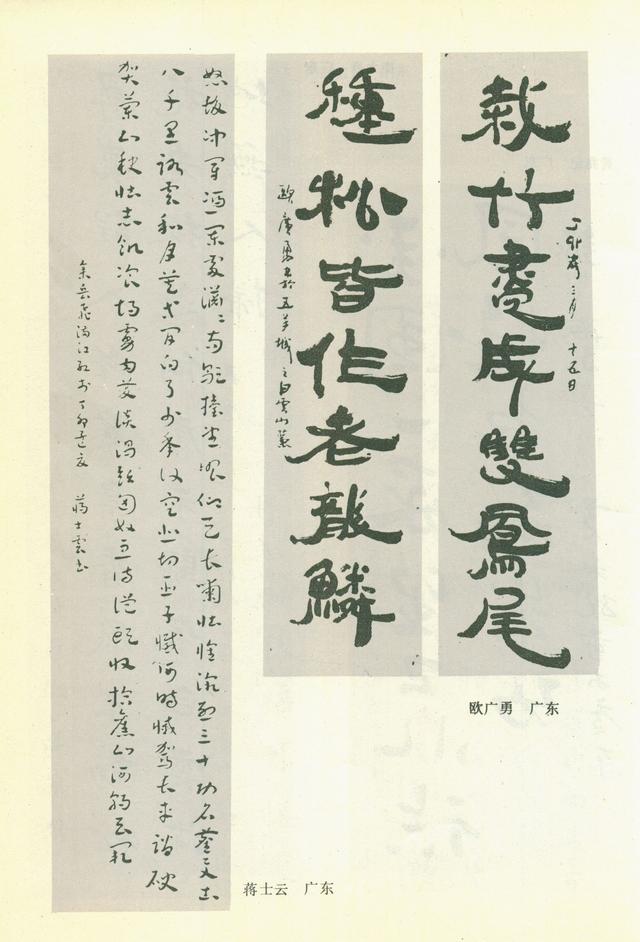 栽竹盡成雙鳳尾
丁卯歲三月十五日
種松皆作老龍鱗
歐廣勇書於五羊城之白雲山麓
欧广勇 广东
怒髮冲冠馮闌處瀟瀟雨歇擡望眼仰天長嘯壯懷激烈三十功名塵與土
八千里路雲和月莫等閒白了少年頭空悲切臣子憾何時滅駕長車踏破
賀蘭山缺壯志飢飡胡虜肉笑談渴飲匈奴血待從頭收拾舊山河朝天闕
岳飛滿江紅 丁卯孟夏 蔣士雲書
蒋士云 广东